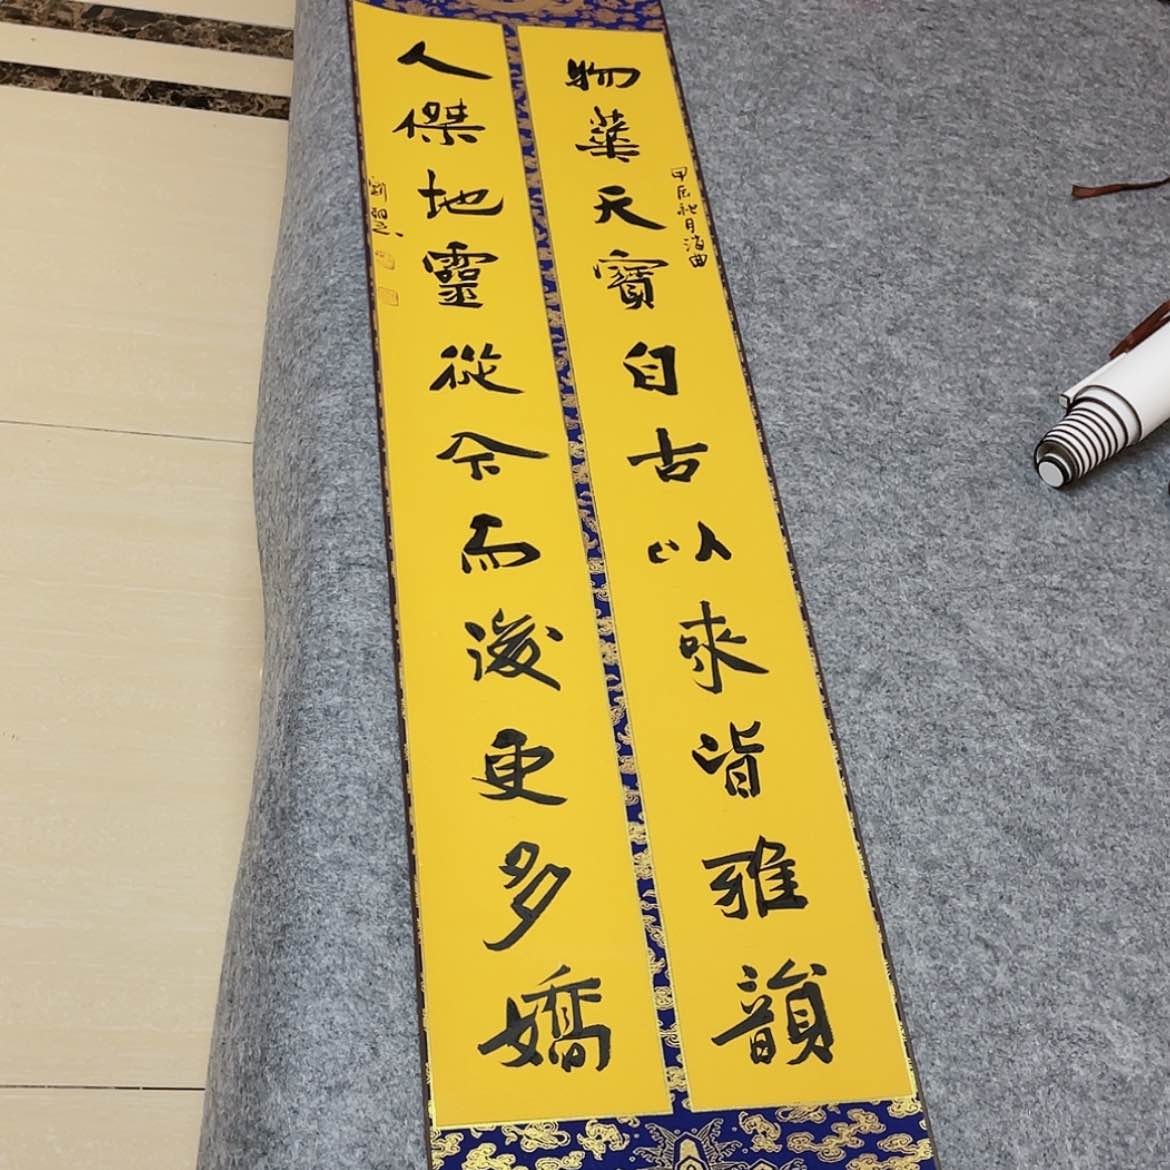 物華天寶自古以來皆雅韻
甲辰秋月
人傑地靈從今而後更多嬌